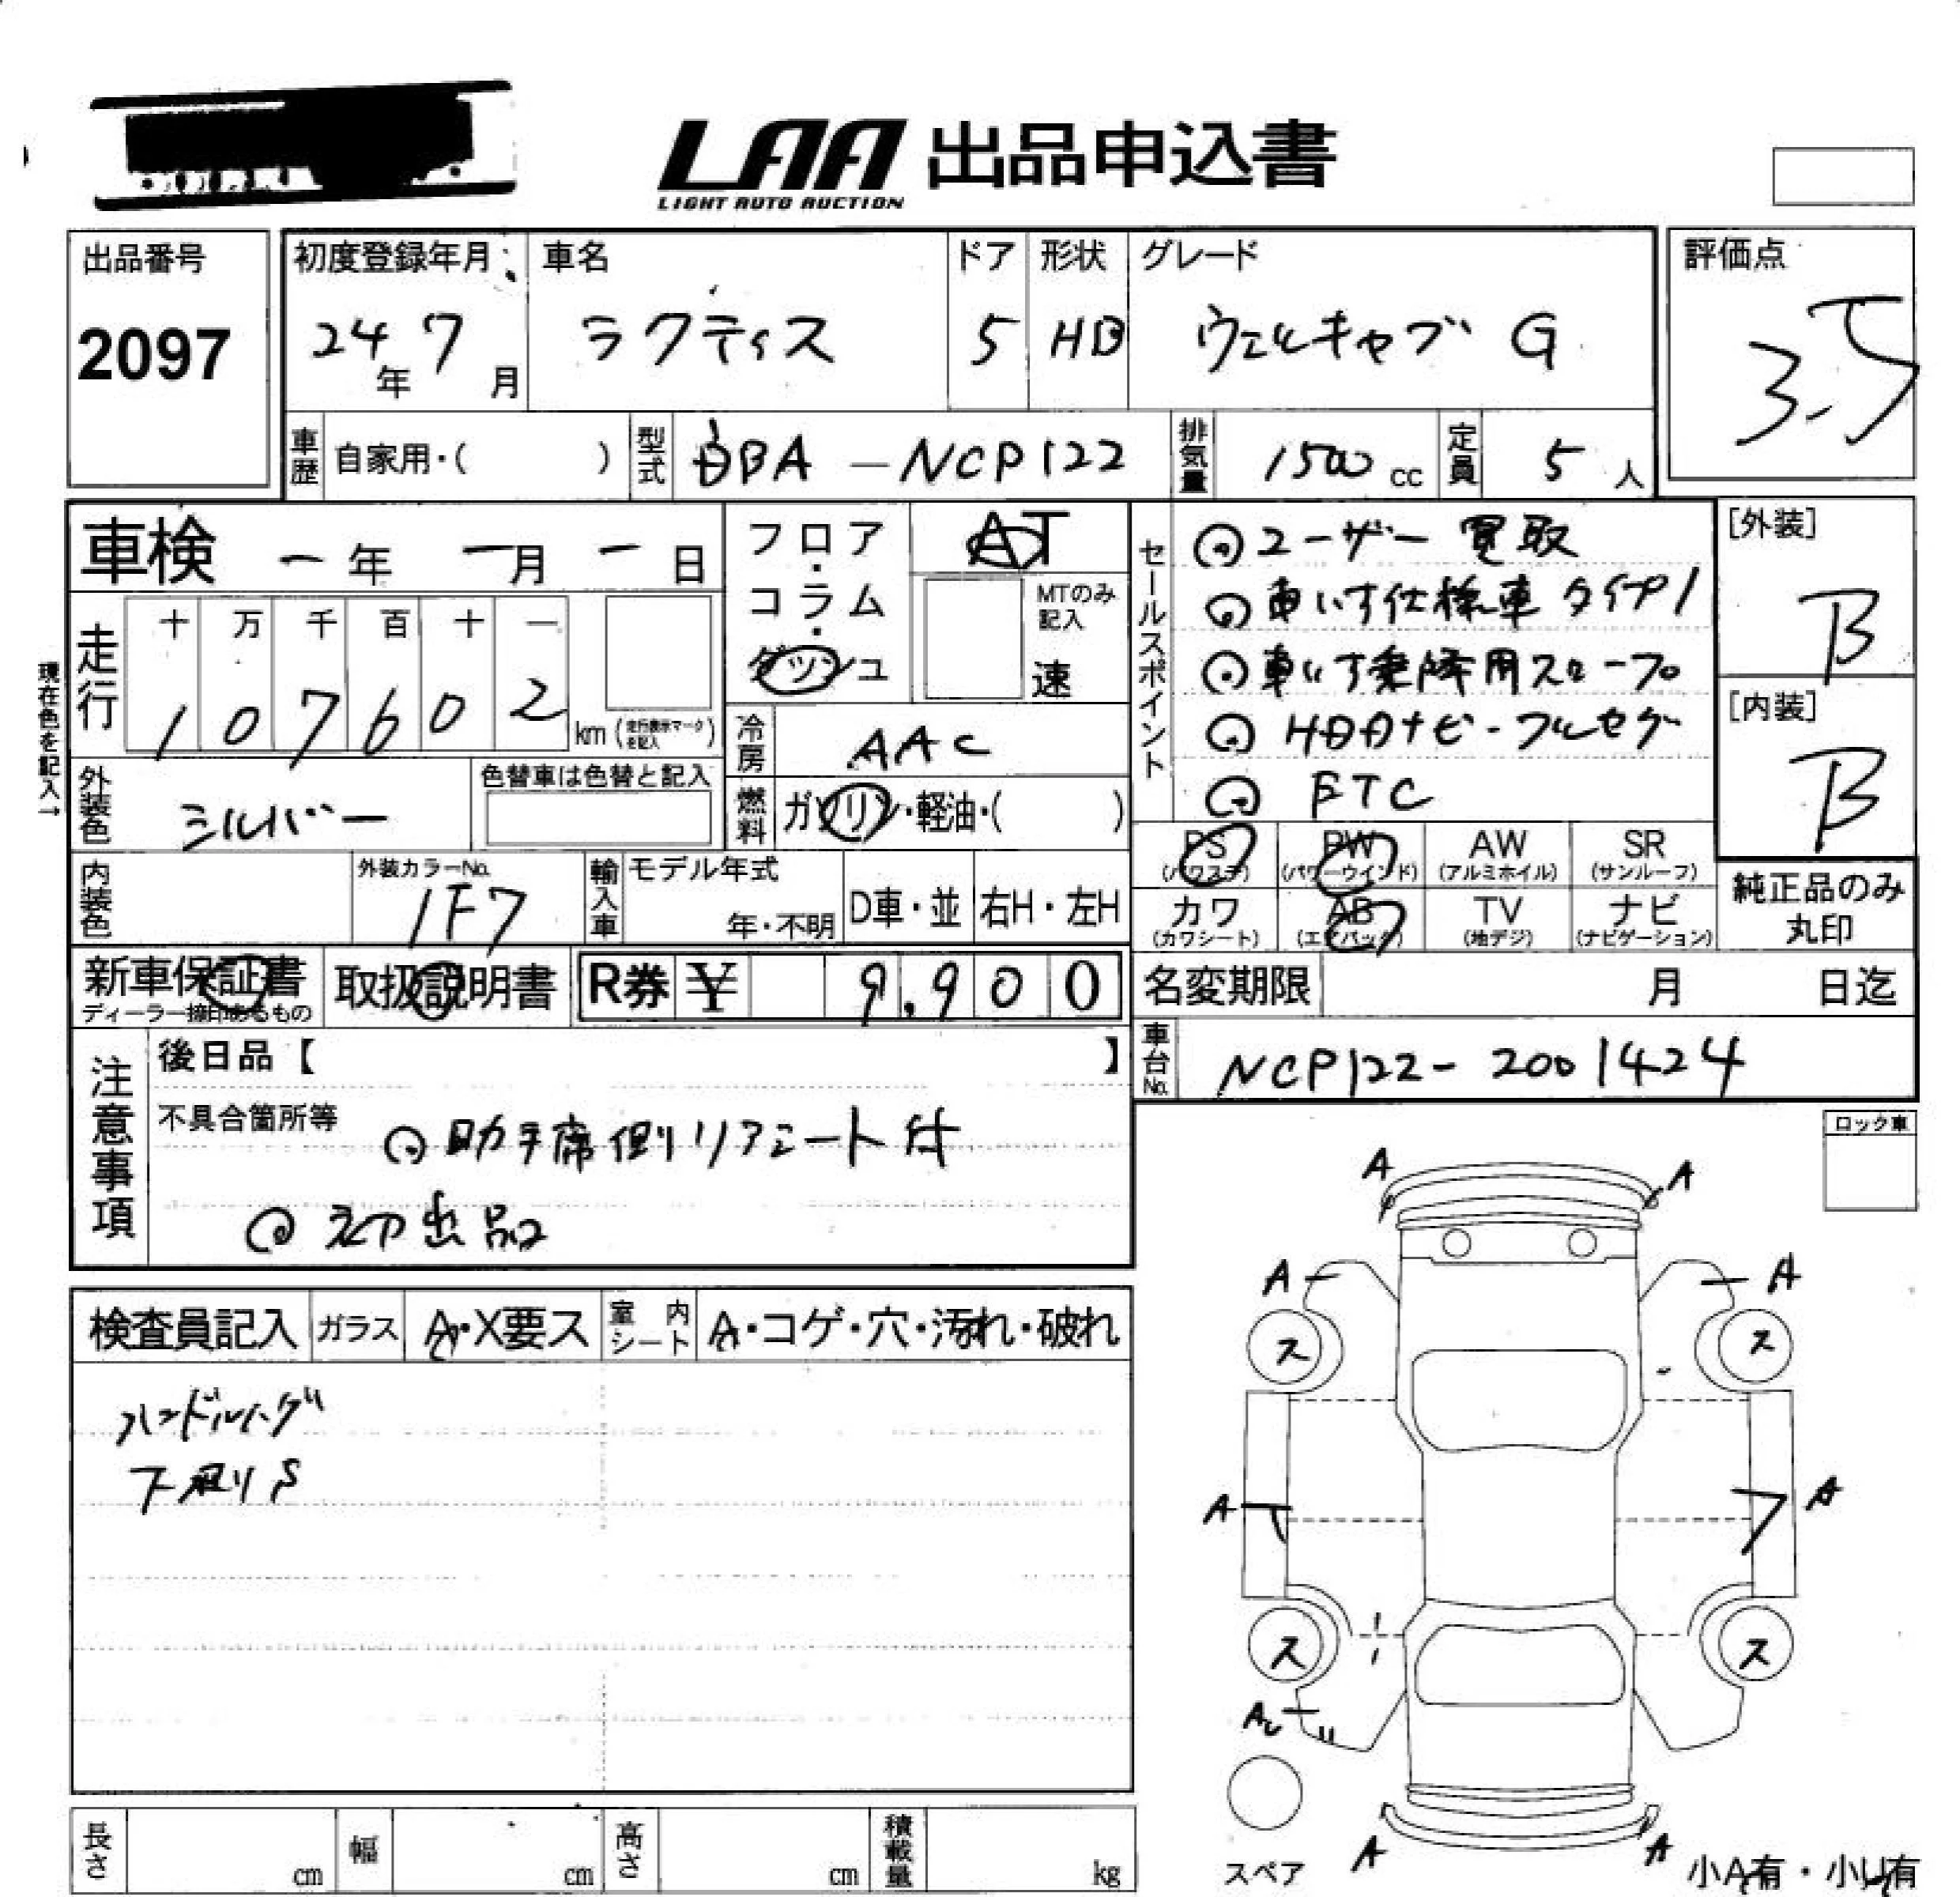 LAA 出品申込書
LIGHT AUTO AUCTION
出品番号
2097
初度登録年月
24年 7月
車名
ラクティス
ドア
5
形状
HB
グレード
ウェルキャブ G
評価点
3.5
車歴 自家用・( )
型式 DBA-NCP122
排気量 1500 cc
定員 5 人
車検 ー年 ー月 ー日
フロア・コラム・ダッシュ
AT
MTのみ記入
速
現在色を記入→
走行
十 万 千 百 十 一
1 0 7 6 0 2 km (走行表示マークを記入)
冷房 AAC
外装色 シルバー
色替車は色替と記入
燃料 ガソリン・軽油・( )
内装色
外装カラーNo.
1F7
輸入車 モデル年式
年・不明
D車・並
右H・左H
セールスポイント
ユーザー買取
車いす仕様車タイプ1
車いす乗降用スロープ
HDDナビ・フルセグ
ETC
[外装]
B
[内装]
B
PS (パワステ)
PW (パワーウインド)
AW (アルミホイル)
SR (サンルーフ)
カワ (カワシート)
AB (エアバック)
TV (地デジ)
ナビ (ナビゲーション)
純正品のみ丸印
新車保証書
ディーラー捺印あるもの
取扱説明書
R券 ¥ 9,900
名変期限 月 日迄
車台No. NCP122-2001424
注意事項
後日品【 】
不具合箇所等
助手席側リアシート付
初出品
ロック車
検査員記入
ガラス A・X要ス
室内シート A・コゲ・穴・汚れ・破れ
ハンドルハゲ
下廻りS
A A
A A
ス ス
A A
ス ス
AU
スペア
A A
小A有・小U有
長さ cm
幅 cm
高さ cm
積載量 kg